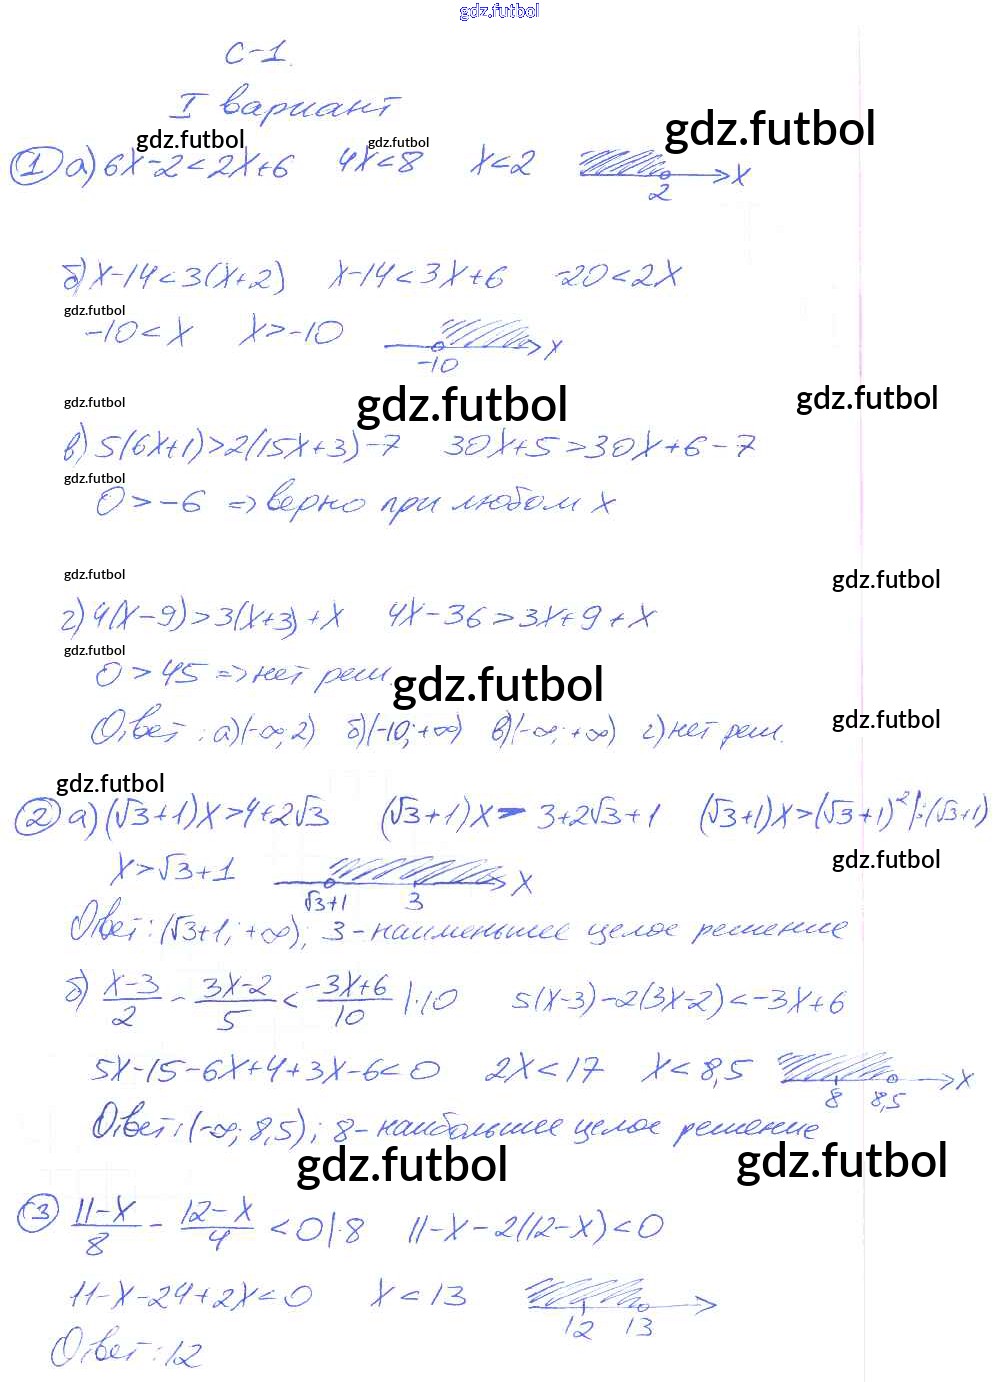 gdz.futbol
С-1.
I вариант
gdz.futbol gdz.futbol gdz.futbol
① а) 6x-2<2x+6 4x<8 x<2 x
2
б) x-14<3(x+2) x-14<3x+6 -20<2x
gdz.futbol
-10<x x>-10 x
-10
gdz.futbol gdz.futbol gdz.futbol
в) 5(6x+1)>2(15x+3)-7 30x+5>30x+6-7
gdz.futbol
0>-6 => верно при любом x
gdz.futbol gdz.futbol
г) 4(x-9)>3(x+3)+x 4x-36>3x+9+x
gdz.futbol
0>45 => нет реш. gdz.futbol
Ответ: а)(-∞;2) б)(-10;+∞) в)(-∞;+∞) г) нет реш. gdz.futbol
gdz.futbol
② а) (√3+1)x>4+2√3 (√3+1)x> 3+2√3+1 (√3+1)x>(√3+1)² |:(√3+1)
gdz.futbol
x>√3+1 x
√3+1 3
Ответ: (√3+1;+∞); 3-наименьшее целое решение
б) (x-3)/2 - (3x-2)/5 < (-3x+6)/10 |·10 5(x-3)-2(3x-2)<-3x+6
5x-15-6x+4+3x-6<0 2x<17 x<8,5 x
8 8,5
Ответ: (-∞;8,5); 8-наибольшее целое решение
gdz.futbol gdz.futbol
③ (11-x)/8 - (12-x)/4 <0 |·8 11-x-2(12-x)<0
11-x-24+2x<0 x<13
12 13
Ответ: 12